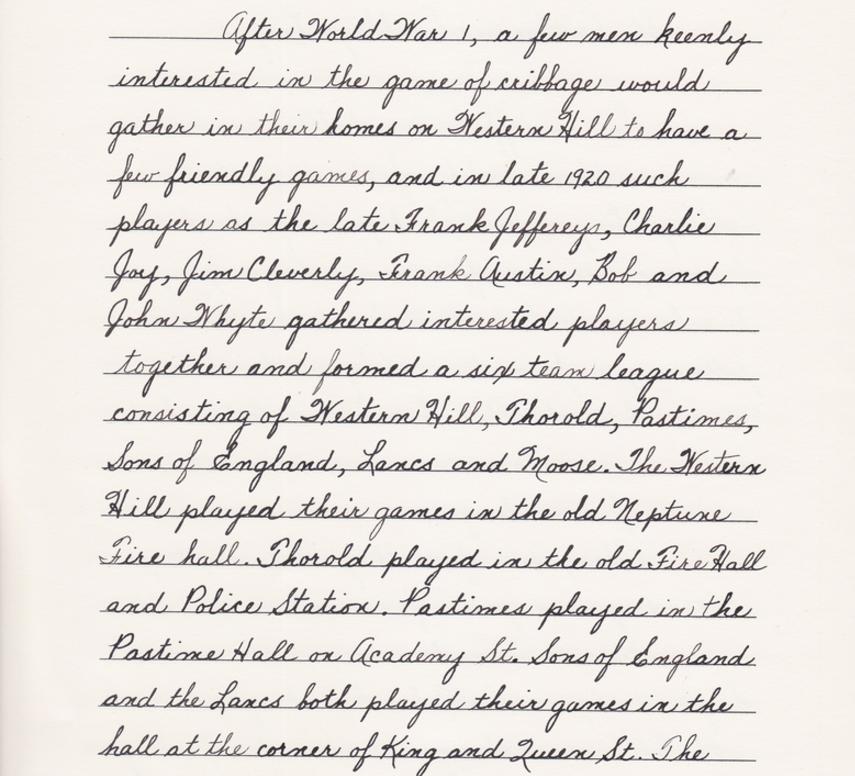 After World War 1, a few men keenly
interested in the game of cribbage would
gather in their homes on Western Hill to have a
few friendly games, and in late 1920 such
players as the late Frank Jeffereys, Charlie
Joy, Jim Cleverly, Frank Austin, Bob and
John Whyte gathered interested players
together and formed a six team league
consisting of Western Hill, Thorold, Pastimes,
Sons of England, Lancs and Moose. The Western
Hill played their games in the old Neptune
Fire hall. Thorold played in the old Fire Hall
and Police Station. Pastimes played in the
Pastime Hall on Academy St. Sons of England
and the Lancs both played their games in the
hall at the corner of King and Queen St. The